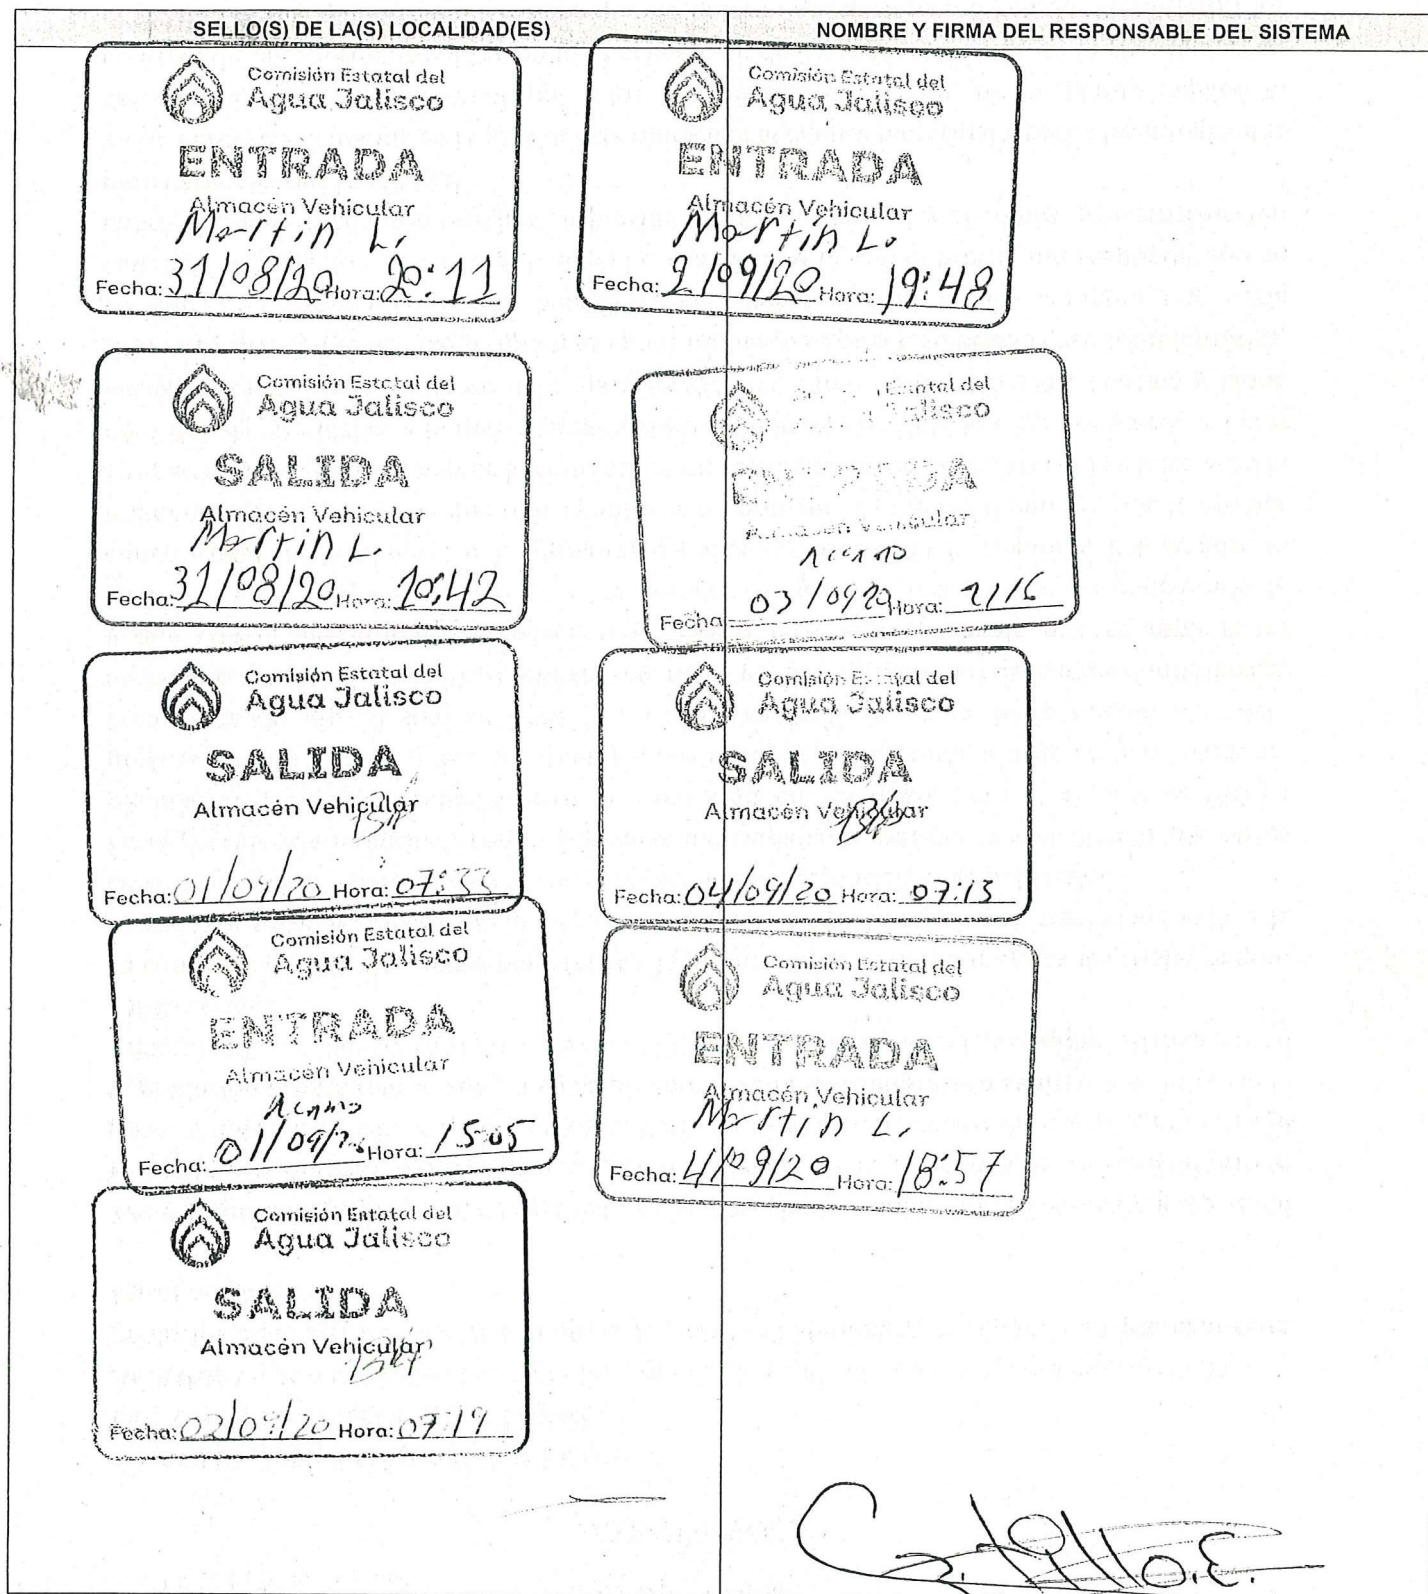 SELLO(S) DE LA(S) LOCALIDAD(ES)
NOMBRE Y FIRMA DEL RESPONSABLE DEL SISTEMA
Comisión Estatal del
Agua Jalisco
ENTRADA
Almacén Vehicular
Martin L.
Fecha: 31/08/20 Hora: 20:11
Comisión Estatal del
Agua Jalisco
SALIDA
Almacén Vehicular
Martin L.
Fecha: 31/08/20 Hora: 10:42
Comisión Estatal del
Agua Jalisco
SALIDA
Almacén Vehicular
Fecha: 01/09/20 Hora: 07:33
Comisión Estatal del
Agua Jalisco
ENTRADA
Almacén Vehicular
Fecha: 01/09/20 Hora: 15:05
Comisión Estatal del
Agua Jalisco
SALIDA
Almacén Vehicular
Fecha: 02/09/20 Hora: 07:19
Comisión Estatal del
Agua Jalisco
ENTRADA
Almacén Vehicular
Martin L.
Fecha: 2/09/20 Hora: 19:48
Estatal del
Jalisco
ENTRADA
Almacén Vehicular
Fecha: 03/09/20 Hora: 2116
Comisión Estatal del
Agua Jalisco
SALIDA
Almacén Vehicular
Fecha: 04/09/20 Hora: 07:13
Comisión Estatal del
Agua Jalisco
ENTRADA
Almacén Vehicular
Martin L.
Fecha: 4/09/20 Hora: 18:57